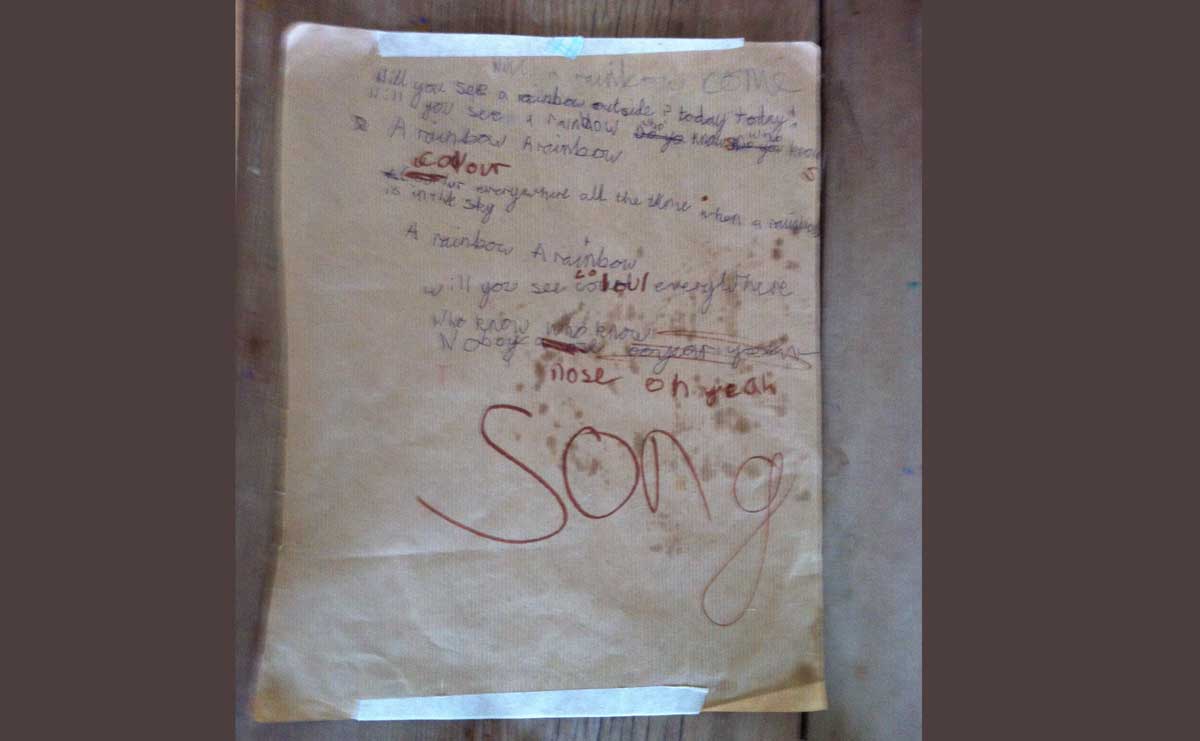 Will a rainbow COME
Will you see a rainbow outside? today today?
Will you see a rainbow who know who know
A rainbow A rainbow
s
colour
everywhere all the time when a rainbow
is in the sky
A rainbow A rainbow
will you see colour everywhere
who know who know
Noboy
nose oh yeah
Song